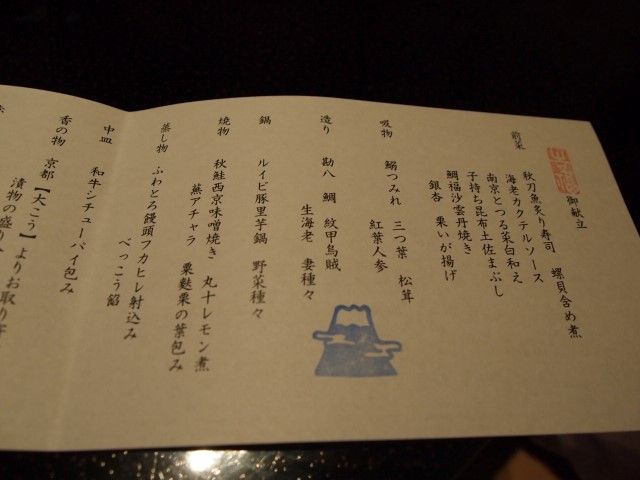 御献立
前菜
秋刀魚炙り寿司　螺貝含め煮
海老カクテルソース
南京とつる菜白和え
子持ち昆布土佐まぶし
鯛福沙雲丹焼き
銀杏　栗いが揚げ
吸物
鰯つみれ　三つ葉　松茸
紅葉人参
造り
勘八　鯛　紋甲烏賊
生海老　妻種々
鍋
ルイビ豚里芋鍋　野菜種々
焼物
秋鮭西京味噌焼き　丸十レモン煮
蕪アチャラ　栗麩栗の葉包み
蒸し物
ふわとろ饅頭フカヒレ射込み
べっこう餡
中皿
和牛シチューパイ包み
香の物
京都【大こう】よりお取り寄
漬物の盛り